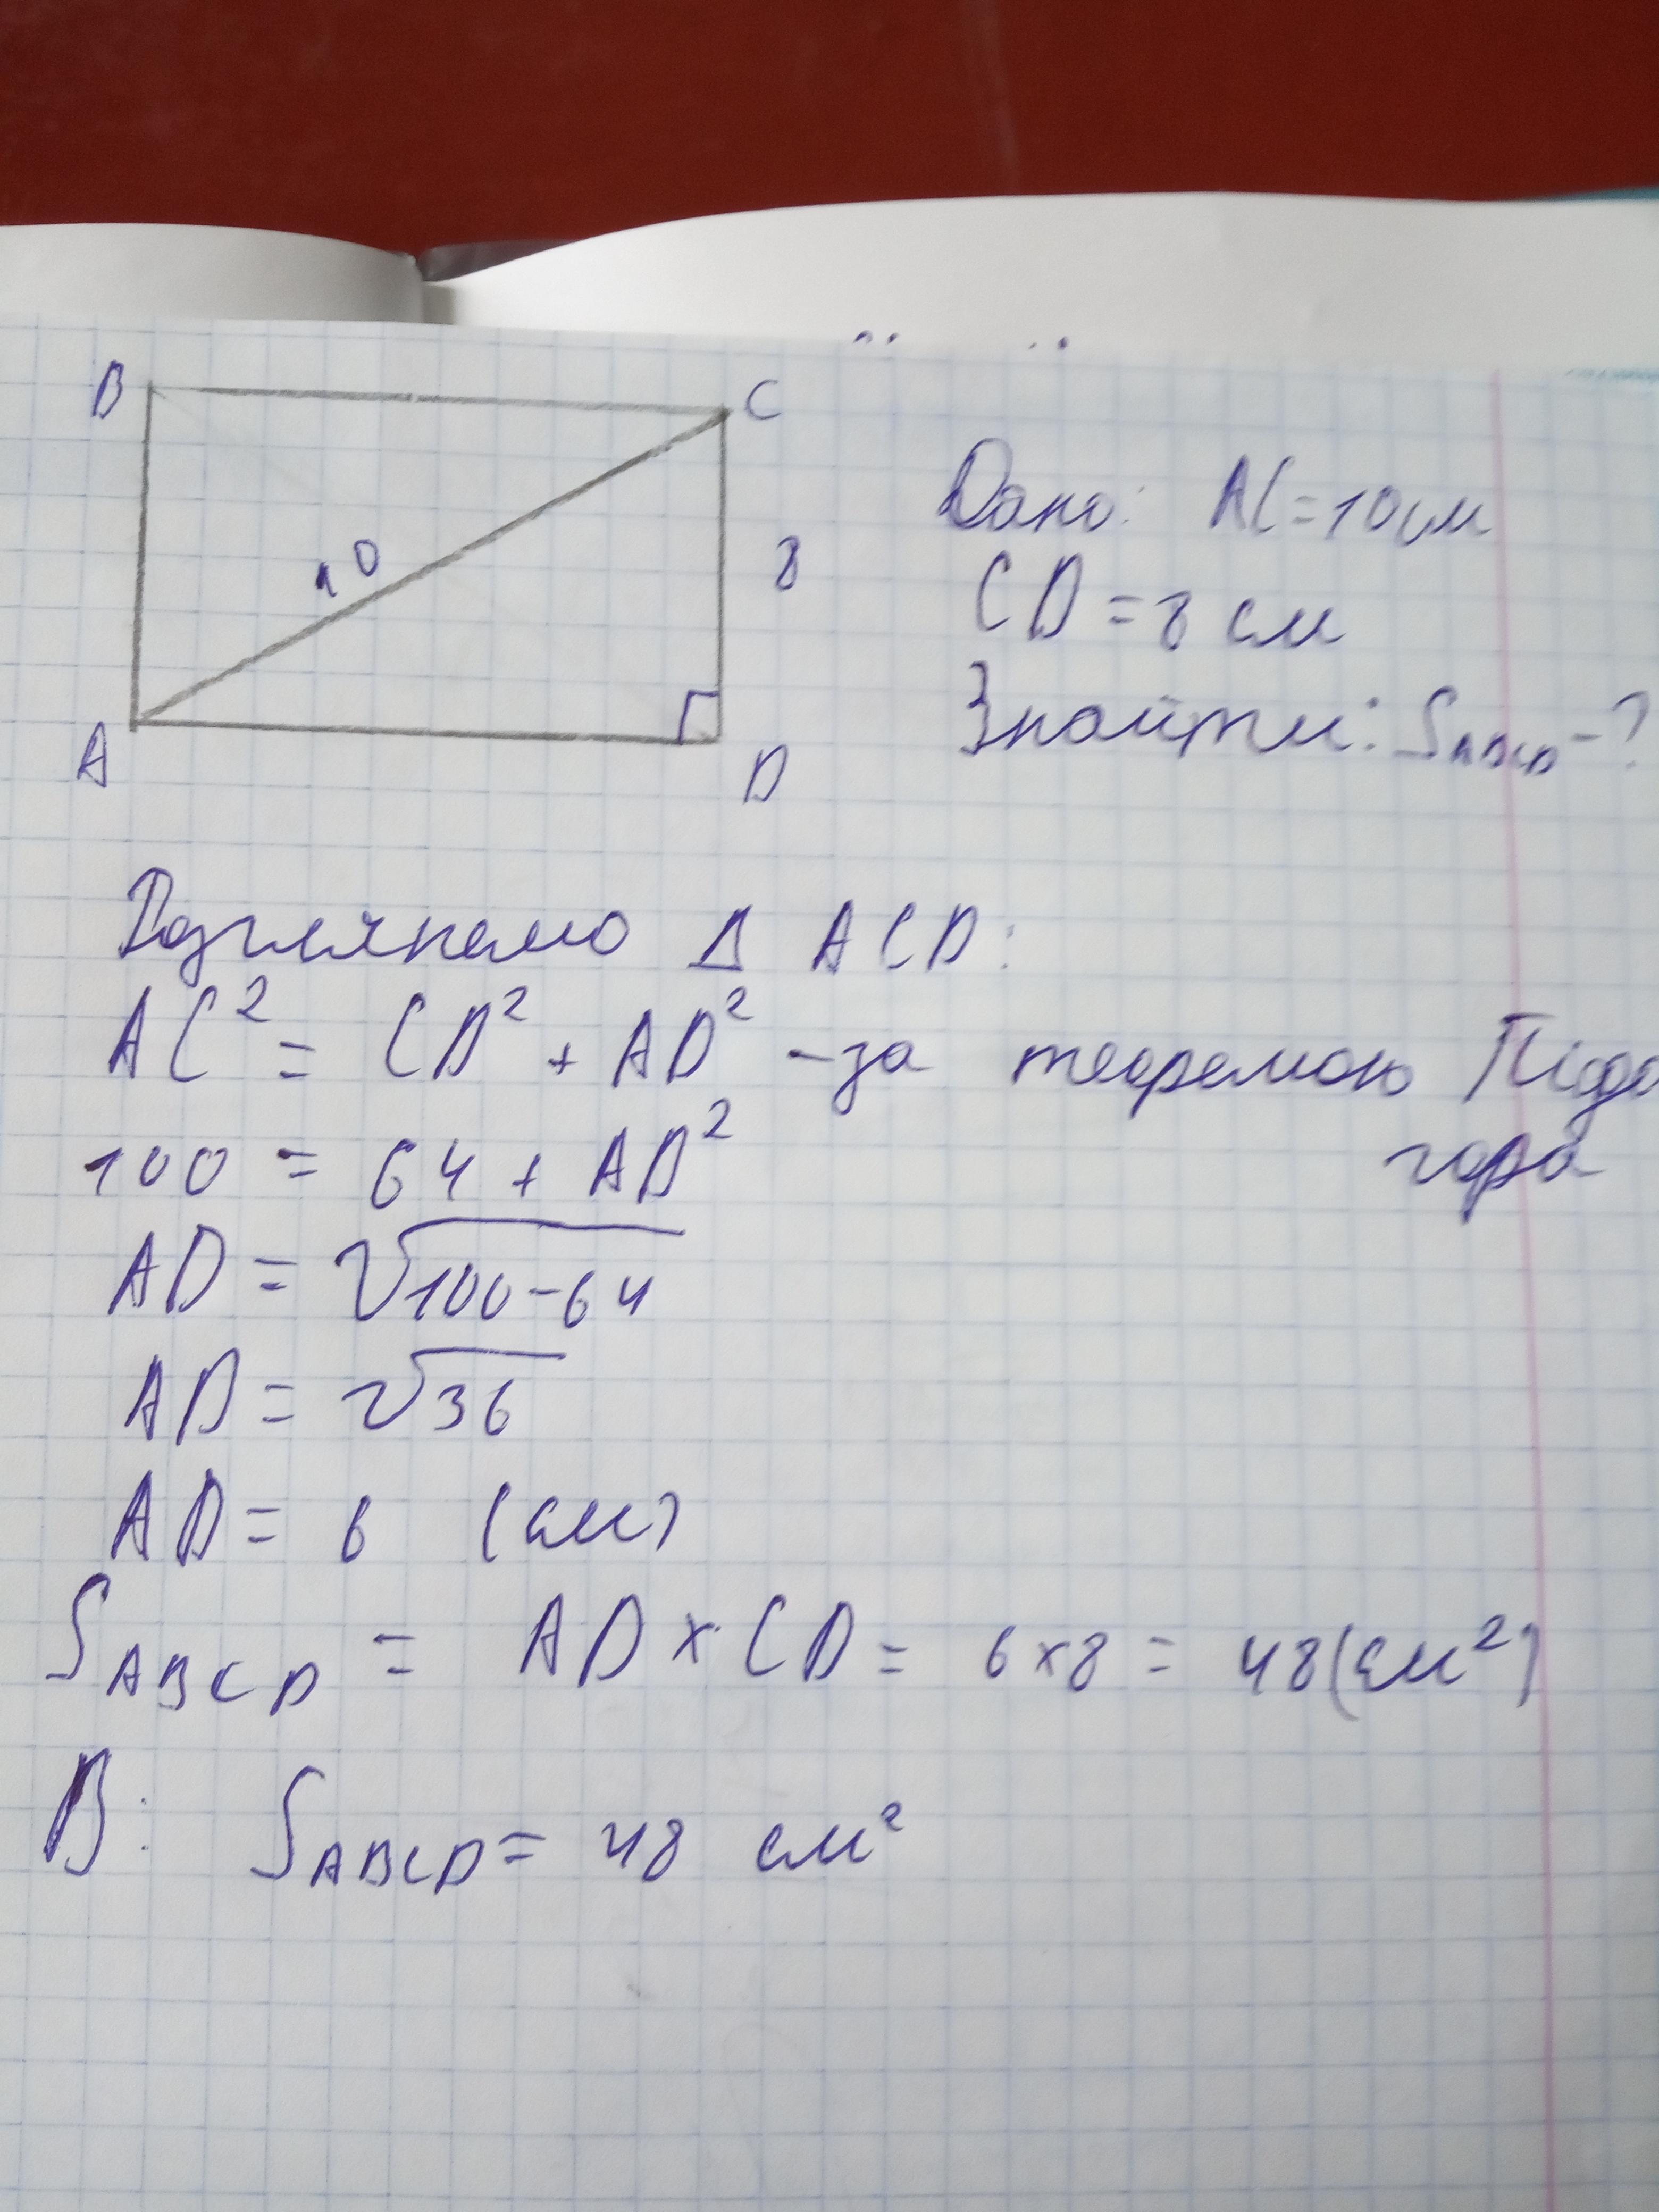 B
C
10
8
A
D
Дано: AC=10см
CD=8 см
Знайти: S_ABCD-?
Розглянемо Δ ACD:
AC² = CD² + AD² - за теоремою Піфа
гора
100 = 64 + AD²
AD = √100-64
AD = √36
AD = 6 (см)
S_ABCD = AD × CD = 6×8 = 48(см²)
В: S_ABCD = 48 см²